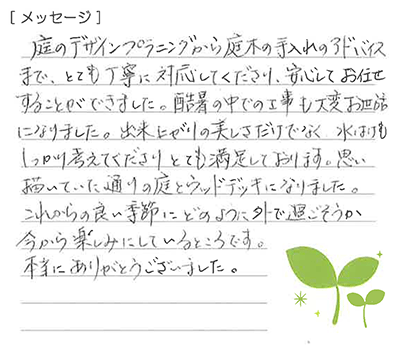 [メッセージ]
庭のデザインプランニングから庭木の手入れのアドバイス
まで、とても丁寧に対応してくださり、安心してお任せ
することができました。酷暑の中での工事も大変お世話
になりました。出来上がりの美しさだけでなく、水はけも
しっかり考えてくださりとても満足しております。思い
描いていた通りの庭とウッドデッキになりました。
これからの良い季節にどのように外で過ごそうか
今から楽しみにしているところです。
本当にありがとうございました。